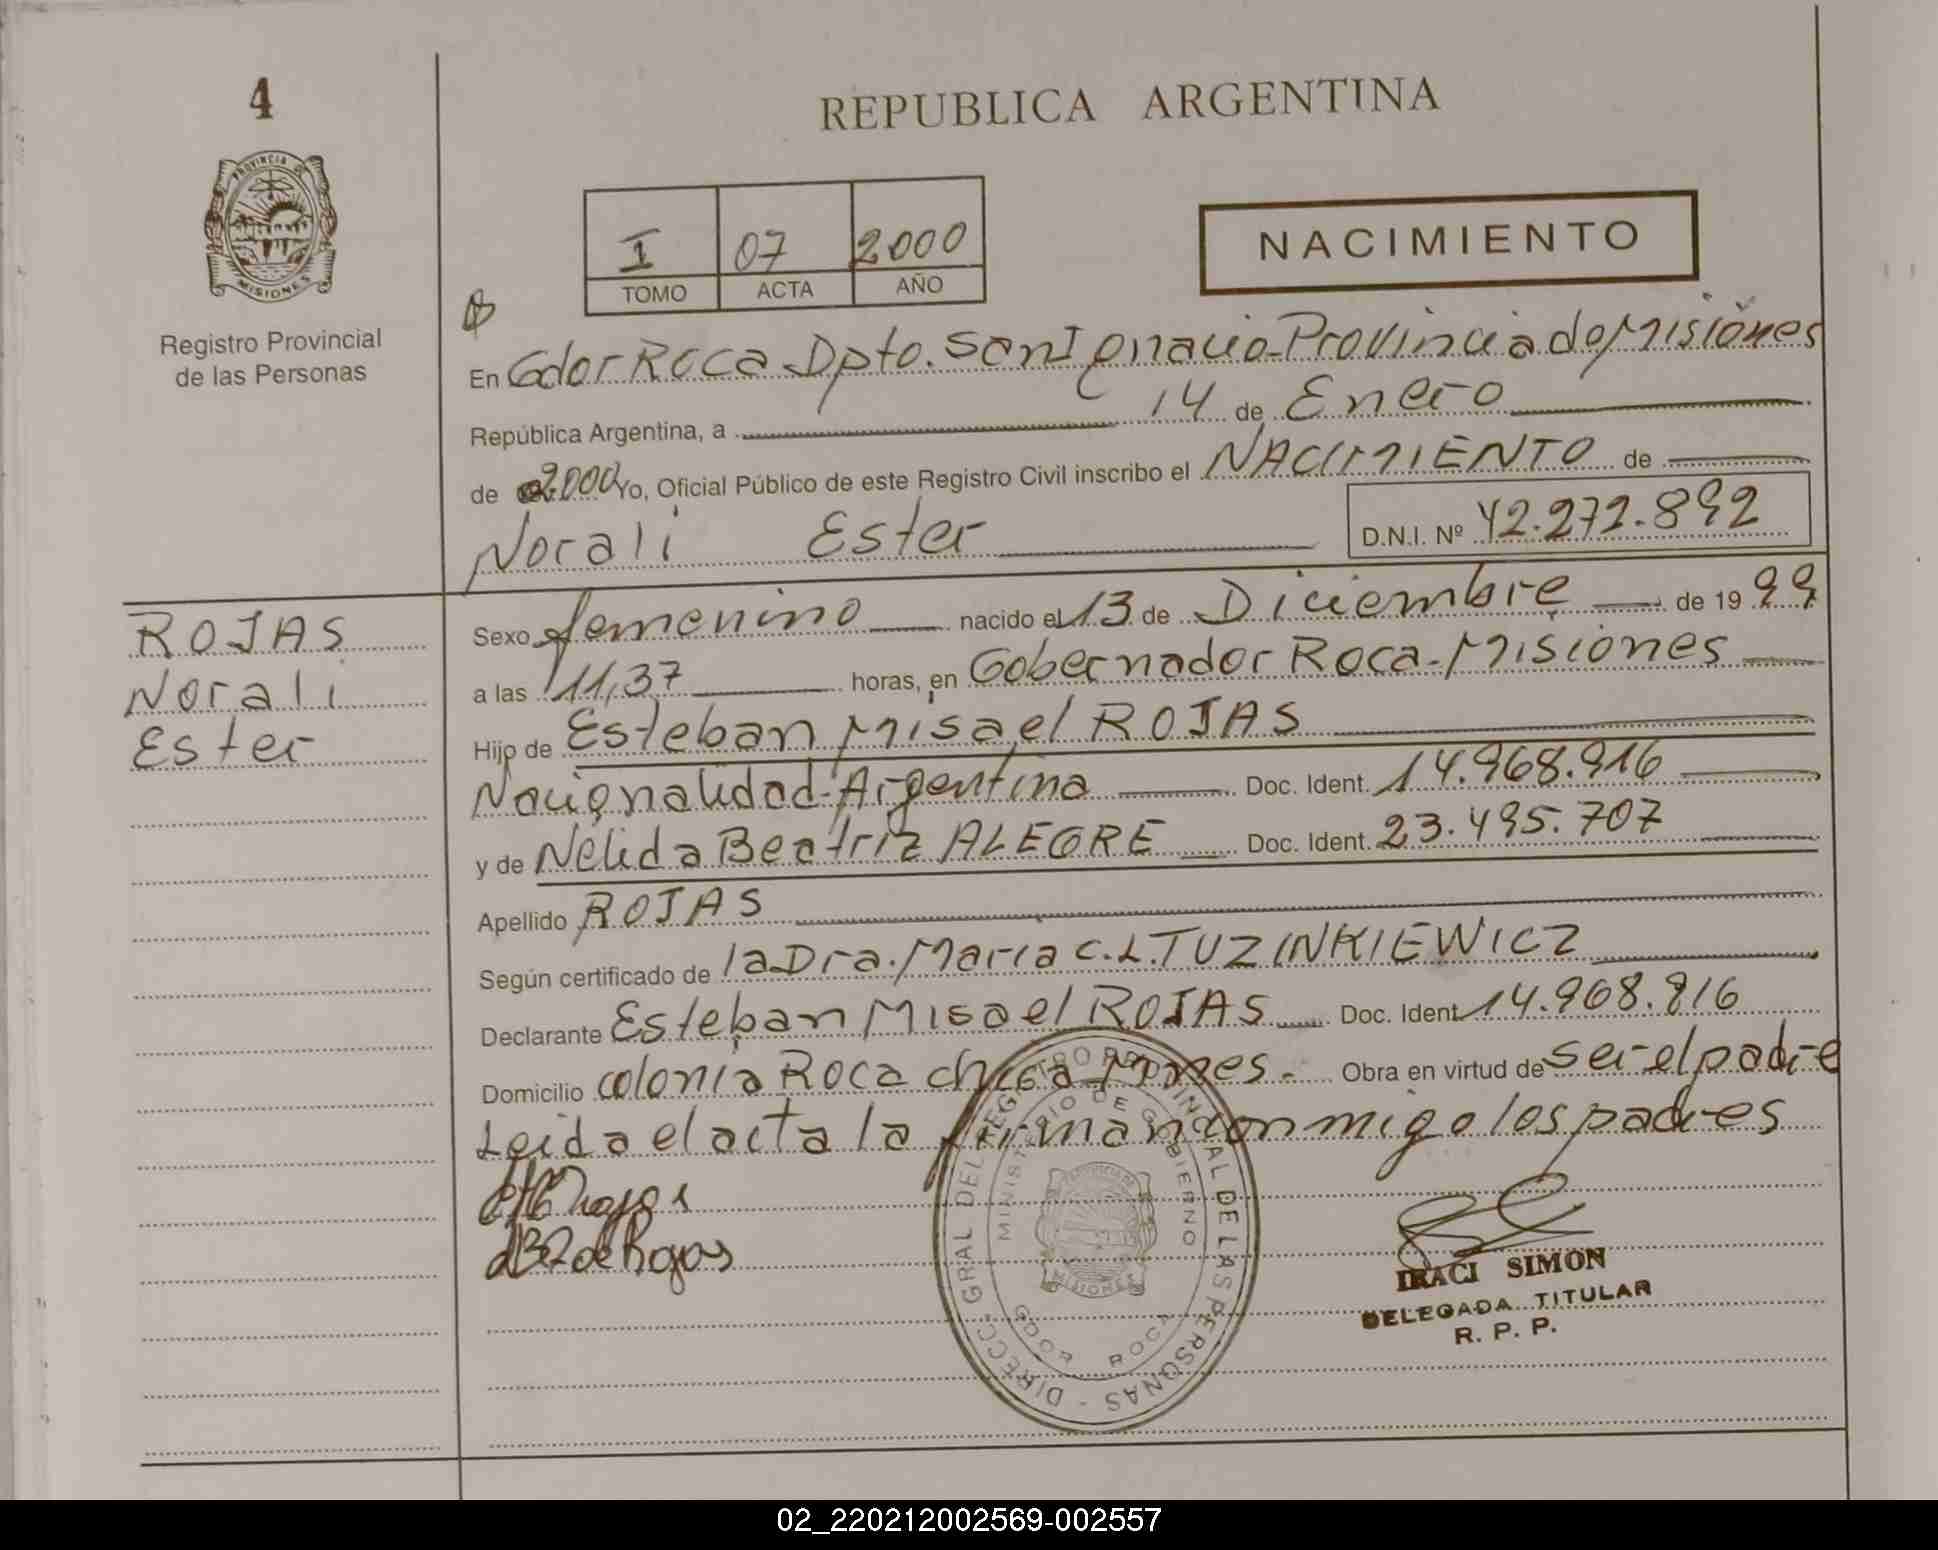 4
REPUBLICA ARGENTINA
PROVINCIA DE
MISIONES
Registro Provincial
de las Personas
I 07 2000
TOMO ACTA AÑO
NACIMIENTO
En Gdor Roca - Dpto. San Ignacio - Provincia de Misiones
República Argentina, a 14 de Enero
de 2.000 Yo, Oficial Público de este Registro Civil inscribo el NACIMIENTO de
Norali Ester
D.N.I. Nº 42.272.892
ROJAS
Norali
Ester
Sexo femenino nacido el 13 de Diciembre de 19 99
a las 11,37 horas, en Gobernador Roca - Misiones
Hijo de Esteban Misael ROJAS
Nacionalidad - Argentina Doc. Ident. 14.968.916
y de Nélida Beatriz ALEGRE Doc. Ident. 23.495.707
Apellido ROJAS
Según certificado de la Dra. Maria C. L. TUZINKIEWICZ
Declarante Esteban Misael ROJAS Doc. Ident. 14.968.816
Domicilio colonia Roca chica Mnes. Obra en virtud de ser el padre
Leida el acta la firman conmigo los padres
de Rojas
DIRECC. GRAL DEL REGISTRO PROVINCIAL DE LAS PERSONAS
MINISTERIO DE GOBIERNO
GDOR ROCA
MISIONES
IRACI SIMON
DELEGADA TITULAR
R. P. P.
02_220212002569-002557